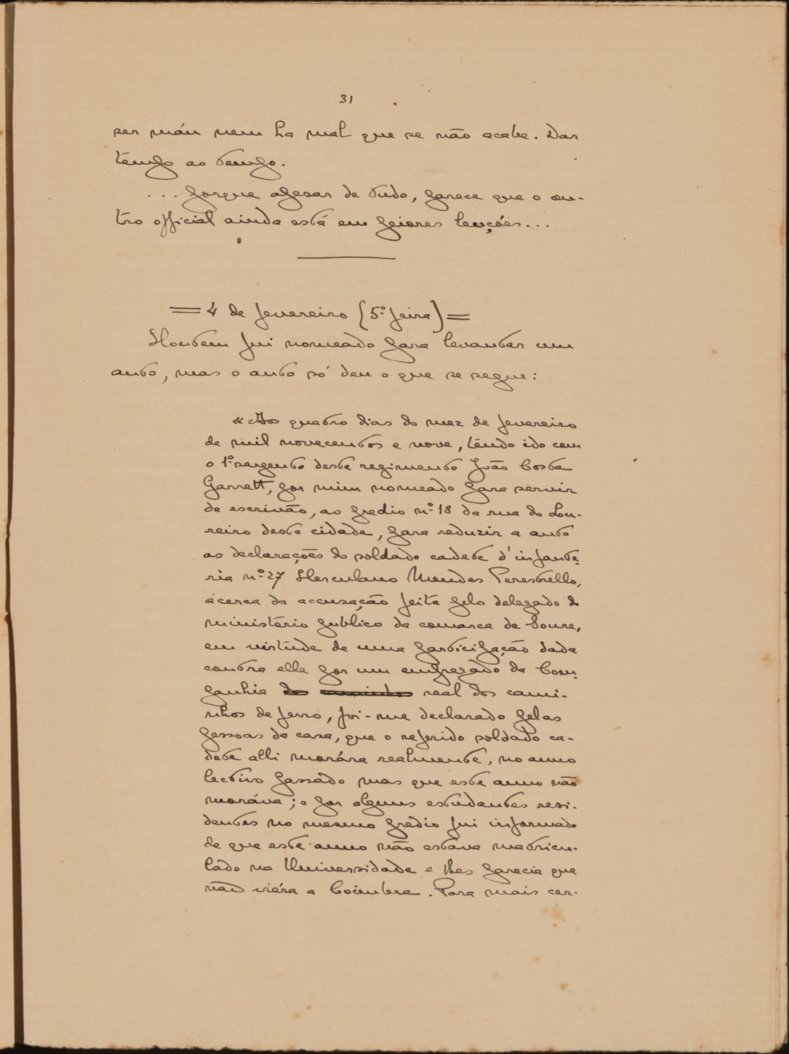 31
ser máu nem ha mal que se não acabe. Dar
tempo ao tempo.
... porque apesar de tudo, parece que o ou-
tro official ainda está em peiores lençóes...
= 4 de fevereiro (5.ª feira) =
Hontem fui nomeado para levantar um
auto, mas o auto só deu o que se segue:
«Aos quatro dias do mez de fevereiro
de mil novecentos e nove, tendo ido com
o 1.º sargento deste regimento João Costa
Garrett, por mim nomeado para servir
de escrivão, ao predio n.º 18 da rua do Lou-
reiro desta cidade, para reduzir a auto
as declarações do soldado cadete d'infante-
ria n.º 27 Herculano Mendes Perestrello,
ácerca da accusação feita pelo delegado do
ministério publico da comarca de Soure,
em virtude de uma participação dada
contra elle por um empregado da Com-
panhia do caminho real dos cami-
nhos de ferro, foi-me declarado pelas
pessoas da casa, que o referido soldado ca-
dete alli morára realmente, no anno
lectivo passado mas que este anno não
morava; e por alguns estudantes resi-
dentes no mesmo predio fui informado
de que este anno não estava matricu-
lado na Universidade e lhes parecia que
não viéra a Coimbra. Para mais cer-